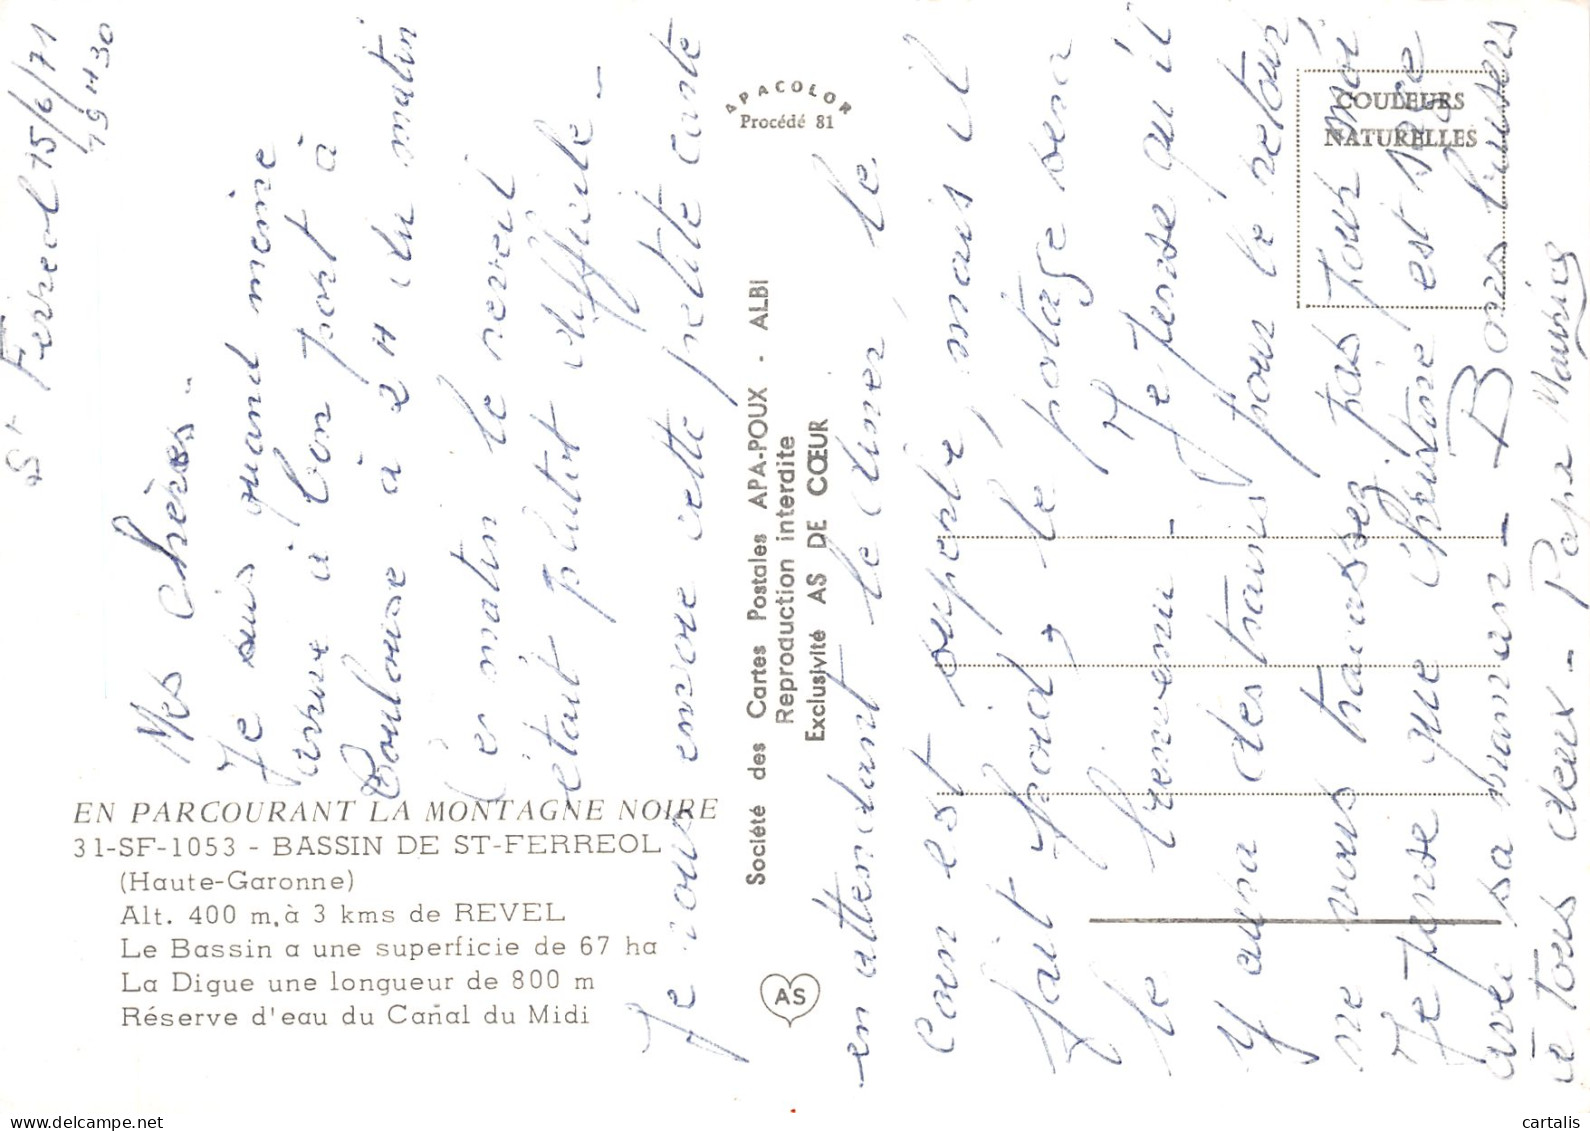 St Ferreol 15/6/71
19H30
Mes Chères -
Je suis quand même
arrivé à bon port à
Toulouse à 2H du matin
Ce matin le réveil
était plutôt difficile -
Je vous envoie cette petite carte
en attendant le diner, le
coin est superbe, mais il
fait froid, le potage sera
le bienvenu - Je pense qu'il
y aura des trains pour le retour
ne vous tracassez pas pour moi
Je pense que Christine est
avec sa maman - Bons baisers
à tous deux - Papa Maurice
EN PARCOURANT LA MONTAGNE NOIRE
31-SF-1053 - BASSIN DE ST-FERREOL
(Haute-Garonne)
Alt. 400 m, à 3 kms de REVEL
Le Bassin a une superficie de 67 ha
La Digue une longueur de 800 m
Réserve d'eau du Canal du Midi
Société des Cartes Postales APA-POUX - ALBI
Reproduction interdite
Exclusivité AS DE CŒUR
APACOLOR
Procédé 81
AS
COULEURS
NATURELLES
delcampe.net
cartalis